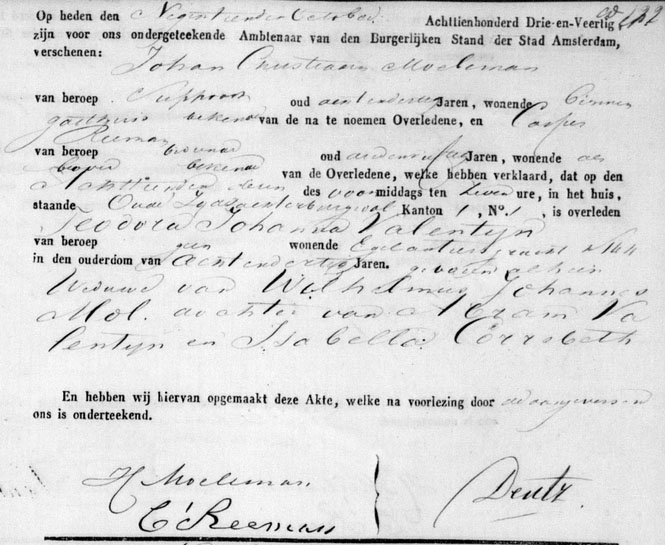 Op heden den Negentienden October Achttienhonderd Drie-en-Veertig
zijn voor ons ondergeteekende Ambtenaar van den Burgerlijken Stand der Stad Amsterdam,
verschenen: Johan Christiaan Moeleman
van beroep oud achtendertig Jaren, wonende binnen
gasthuis bekende van de na te noemen Overledene, en Casper
Reeman
van beroep oud Jaren, wonende als
boven bekende van de Overledene, welke hebben verklaard, dat op den
Achttienden dezer des voormiddags ten zeven ure, in het huis,
staande Oude Zijds Achterburgwal Kanton 1, No. 1, is overleden
Teodora Johanna Valentyn
van beroep geen wonende Egelantiersgracht N 144
in den ouderdom van achtendertig Jaren. geboren alhier
Weduwe van Wilhelmus Johannes
Mol. dochter van Abram Va
lentyn en Isabella Corrsbeth
En hebben wij hiervan opgemaakt deze Akte, welke na voorlezing door de aangevers en
ons is onderteekend.
H Moeleman
C Reeman
Dentz